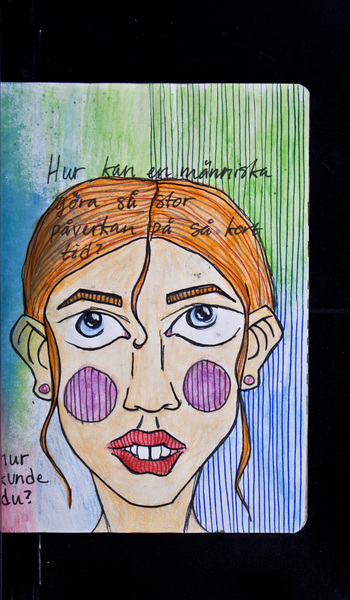 Hur kan en människa
göra så stor
påverkan på så kort
tid?
hur
kunde
du?